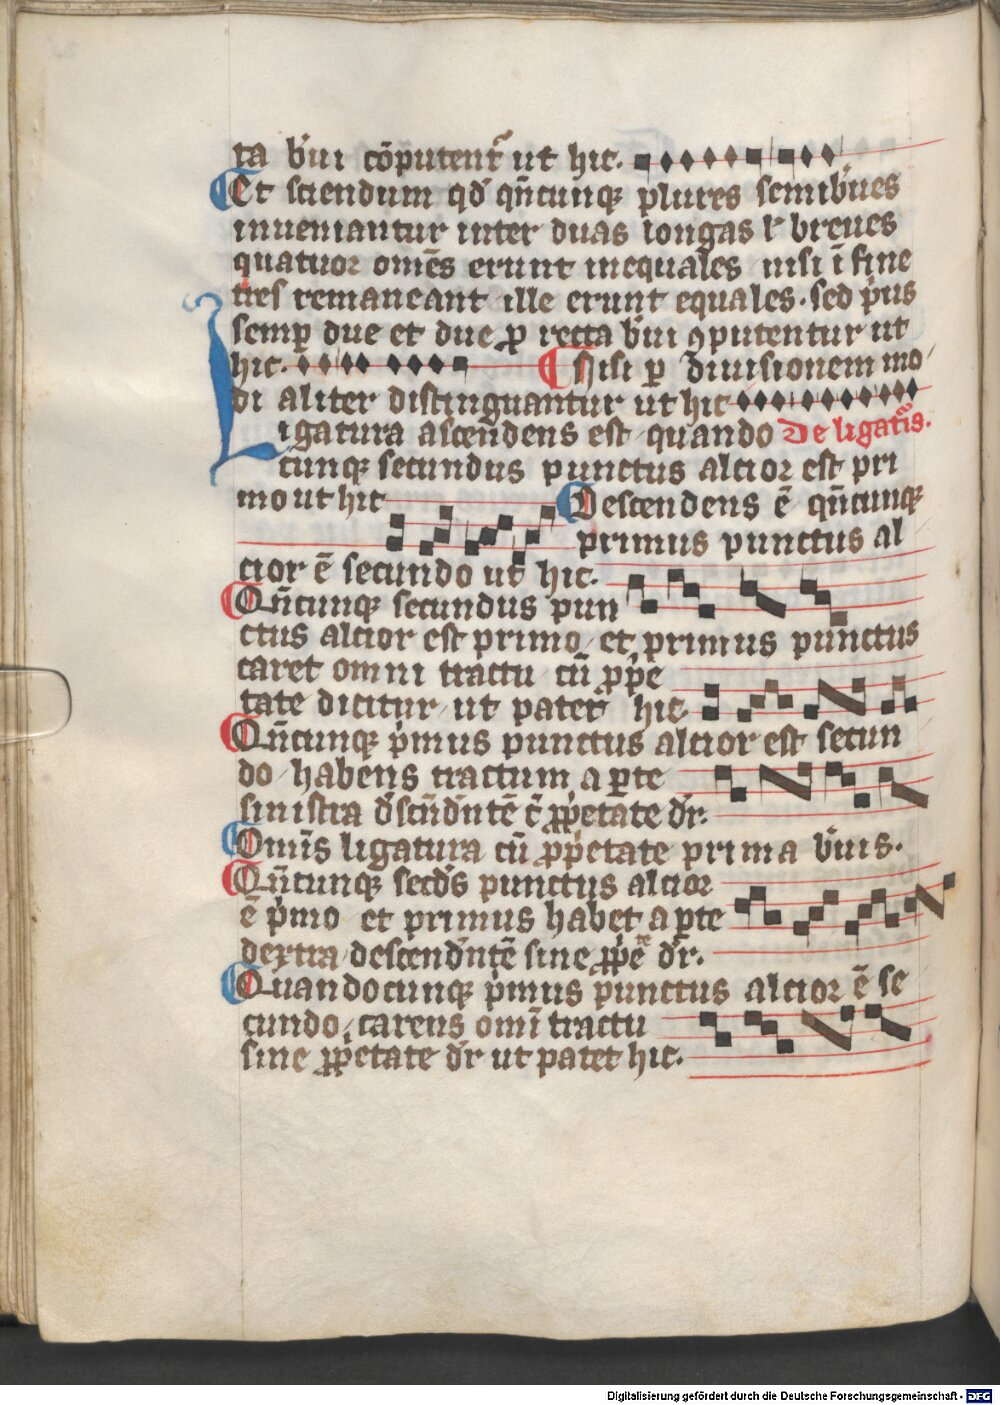 ta b̄ui cōputent᷑ ut hic.
Et sciendum qd̄ qn̄cunqꝫ plures semib̄ues
inueniantur inter duas longas ł breues
quatuor omēs erunt inequales nisi ī fine
tres remaneant ille erunt equales. sed p̄us
semꝑ due et due ꝓ recta b̄ui ꝯputentur ut
hic. Nisi ꝑ diuisionem mo/
di aliter distinguantur ut hic
Ligatura ascendens est quando De ligatᷓis.
cunqꝫ secundus punctus alcior est pri
mo ut hic Descendens ē qn̄cunqꝫ
primus punctus al
cior ē secundo ut hic.
Qn̄cunqꝫ secundus pun
ctus alcior est primo et primus punctus
caret omni tractu cū ꝓp̄e
tate dicitur ut patet hic
Qn̄cunqꝫ p̄mus punctus alcior est secun
do habens tractum a ꝑte
sinistra d̄scn̄d̄ntē c̄ ꝓp̄etate dr̄.
Omīs ligatura cū ꝓp̄etate prima b̄uis.
Qn̄cunqꝫ secd̄s punctus alcior
ē p̄mo et primus habet a ꝑte
dextra descend̄ntē sine ꝓp̄e dr̄.
Quandocunqꝫ p̄mus punctus alcior ē se
cundo carens omī tractu
sine ꝓp̄etate dr̄ ut patet hic.
Digitalisierung gefördert durch die Deutsche Forschungsgemeinschaft - DFG